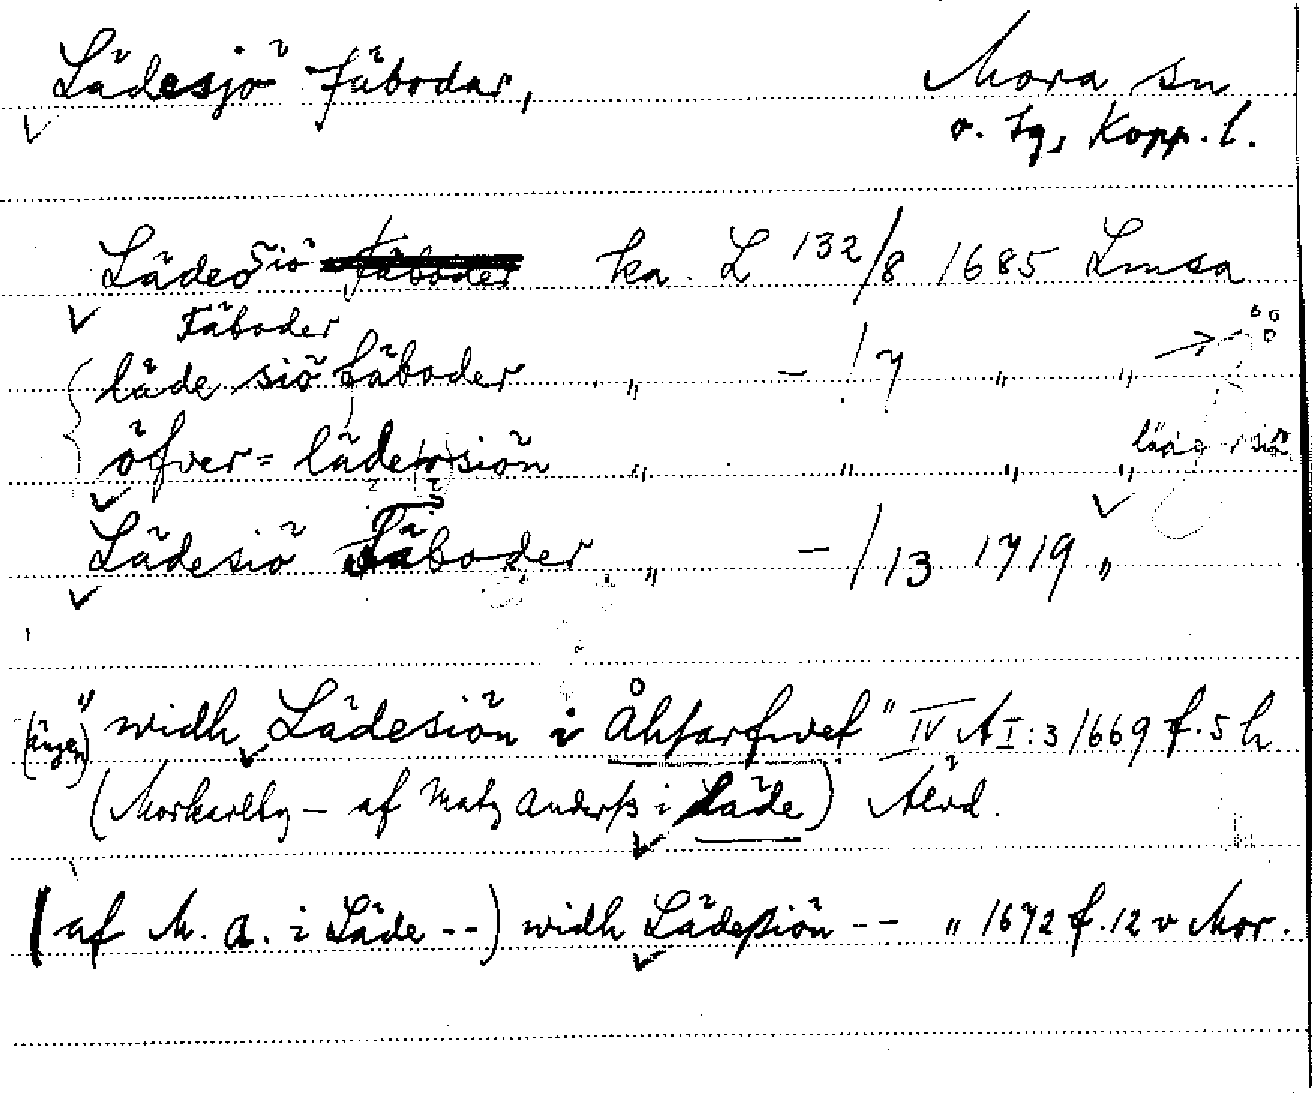 Lädesjö fäbodar, Mora sn
o. tg, Kopp. l.
Lädesiö ka. L 132/8 1685 Lmsa
Fäboder
läde siö fäboder " - /7 " "
öfver = läde siön " " " "
Lädesiö Fäboder " - /13 1719 "
(ängen) "widh Lädesiön i Åhsarfwet" IV AI:3 1669 f. 5 h
(Morkarlby - af Matz Anderß i Läde) Älvd.
(af M. A. i Läde --) widh Lädeßiön -- " 1672 f. 12 v Mor.